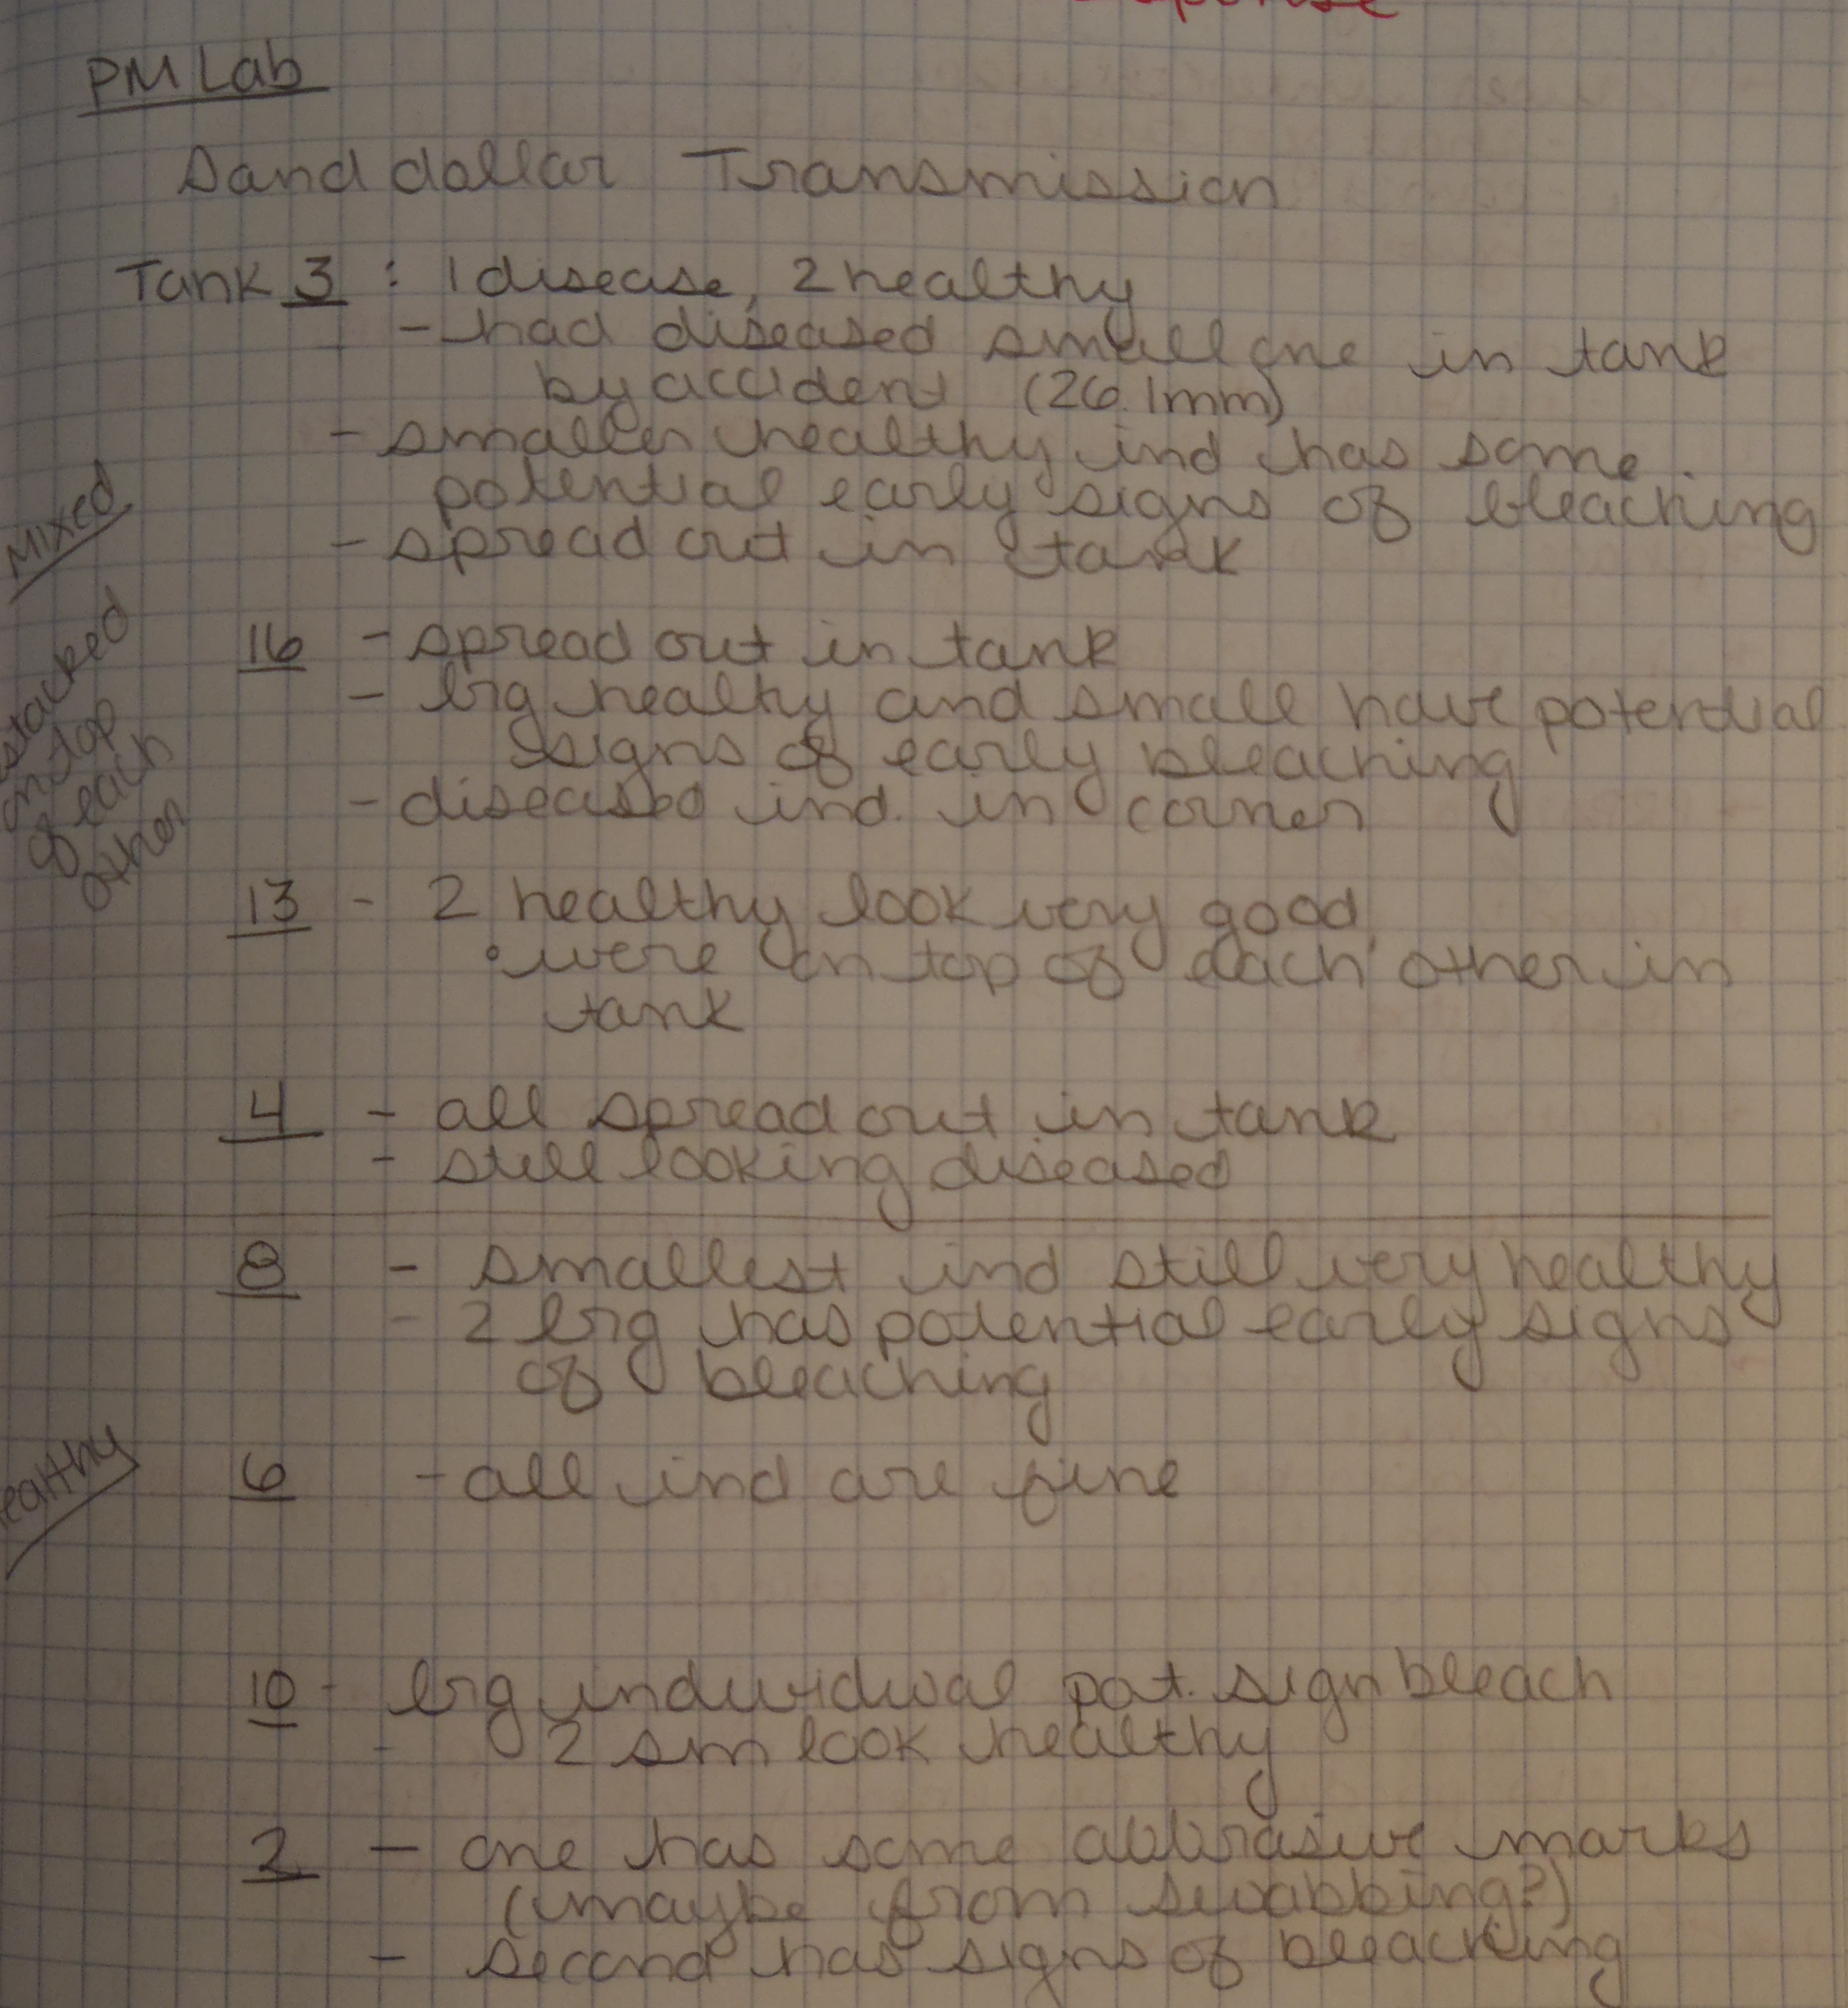 PM Lab
Sand dollar Transmission
Tank 3 : 1 disease, 2 healthy
- had diseased small one in tank
by accident (26.1mm)
- smaller healthy ind has some
potential early signs of bleaching
- spread out in tank
Mixed
stacked
on top
of each
other
16 - spread out in tank
- big healhy and small have potential
signs of early bleaching
- diseased ind. in corner
13 - 2 healthy look very good,
• were on top of each other in
tank
4 - all spread out in tank
- still looking diseased
8 - smallest ind still very healthy
- 2 big has potential early signs
of bleaching
ealthy
6 - all ind are fine
10 - big individual pot. sign bleach
- 2 sm look healthy
2 - one has some abbrasive marks
(maybe from swabbing?)
- second has signs of bleaching